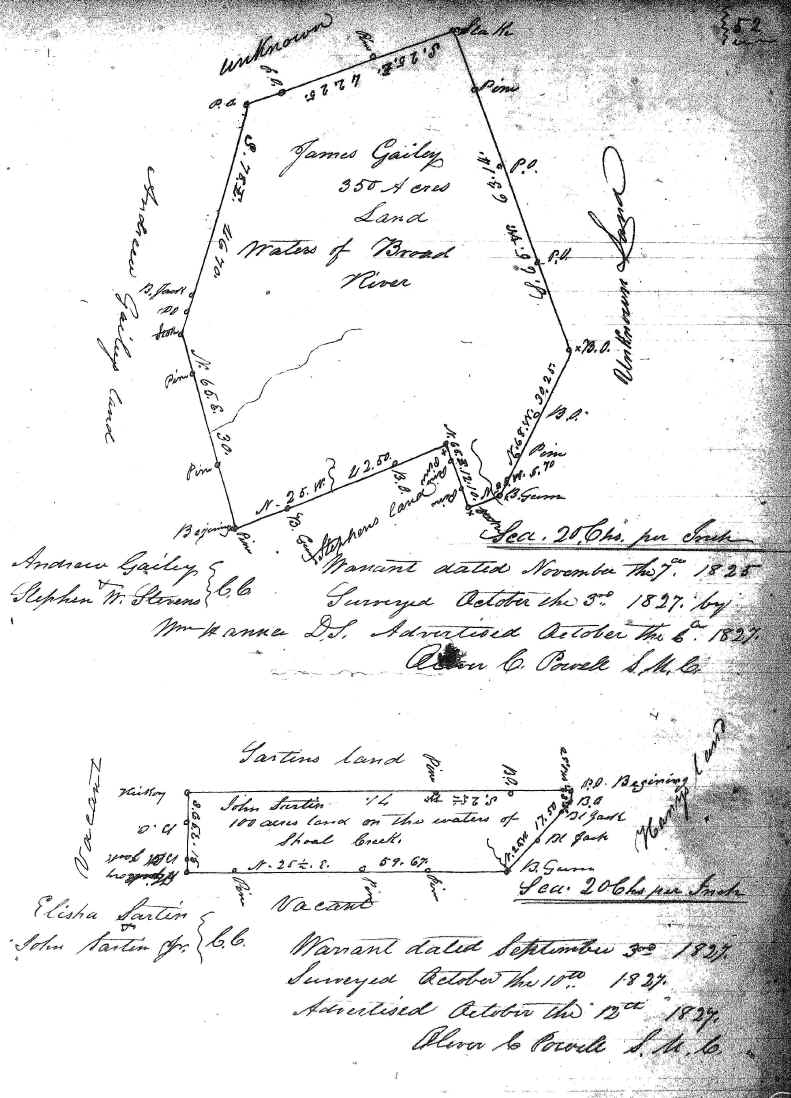 52
Unknown
P.O.
P.O.
Pine
Stake
S. 25 E.
42.25.
Pine
P.O.
P.O.
B.O.
James Gailey
350 Acres
Land
Waters of Broad
River
Unknown Land
Andrew Gaileys land
B. Jack
DO
Pine
N. 65. E. 30.
Pine
Begining
Pine
N. 25. W. 42.50.
B. Gum
B.O.
Stephens land
Pine
N. 68. W. 30.25.
B.O.
Pine
B. Gum
Sca. 20. Chs. per Inch
Andrew Gailey
&
Stephen W. Stevens } C.C.
Warrant dated November the 7th. 1825
Surveyed October the 3rd. 1827. by
Wm Hanna D.S. Advertised October the 6th. 1827.
Oliver C. Powell S.M.C.
Sartins land
Pine
P.O.
Hickory
P.O. Begining
B.O
Bl Jack
Bl Jack
B. Gum
Vacant
John Sartin
100 acres land on the waters of
Shoal Creek.
N. 25 ½. E. 59.67.
17.50
Pine
Pine
Pine
Vacant
Sca. 20 Chs per Inch
Elisha Sartin
&
John Sartin Jr. } C.C.
Warrant dated September 3rd 1827.
Surveyed October the 10th. 1827.
Advertised October the 12th 1827.
Oliver C Powell S.M.C.